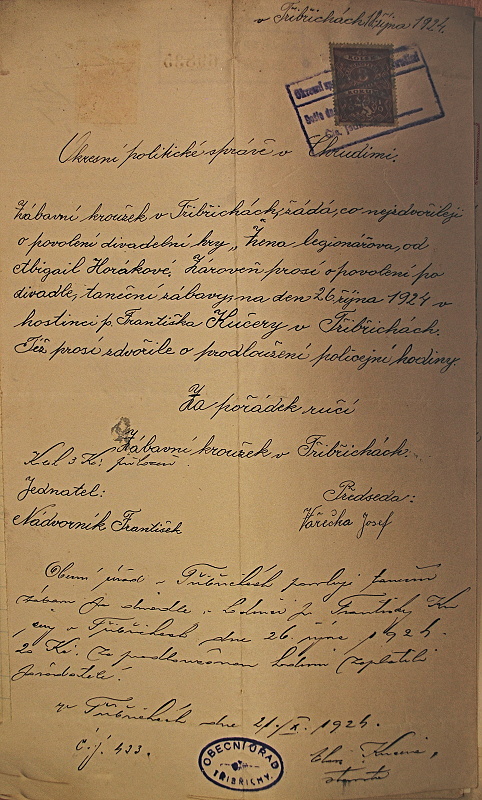 v Třibřichách října 1924.
KOLEK
Okresní
Okresní politické správě v Chrudimi.
Zábavní kroužek v Třibřichách, žádá, co nejzdvořileji
o povolení divadelní hry „Žena legionářova, od
Abigail Horákové. Zároveň prosí o povolení po
divadle, taneční zábavy, na den 26. října 1924 v
hostinci p. Františka Kučery v Třibřichách.
Též prosí zdvořile o prodloužení policejní hodiny.
Za pořádek ručí
Zábavní kroužek v Třibřichách.
Kol. 3 Kč
Jednatel:
Předseda:
Nádvorník František
Vařecha Josef
Obecní úřad v Třibřichách povoluje taneční
zábavu po divadle v hostinci p. Františky Ku
čery v Třibřichách dne 26. října 1924.
20 Kč. za prodloužení hodiny zaplatili
pořadatelé.
v Třibřichách dne 21./X. 1924.
č.j. 433.
OBECNÍ ÚŘAD
TŘIBŘICHY.
Kučera,
starosta